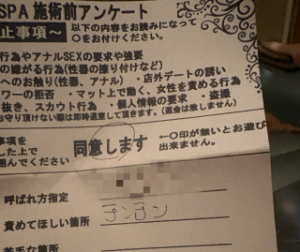 SPA 施術前アンケート
止事項〜
以下の内容をお読みになって
○をお付けください。
行為やアナルSEXの要求や強要
の嫌がる行為(性器の擦り付けなど)
へのお触り(性器、アナル)・店外デートの誘い
ワーの拒否・マット上で動く、女性を責める行為
抜き、スカウト行為・個人情報の要求・盗撮
お守り頂けない際は即時退室して頂きます。(返金は致しません)
事項を
した上で
囲んでください
同意します
←○印が無いとお遊び
出来ません。
呼ばれ方指定
責めてほしい箇所
チンチン
苦手な箇所